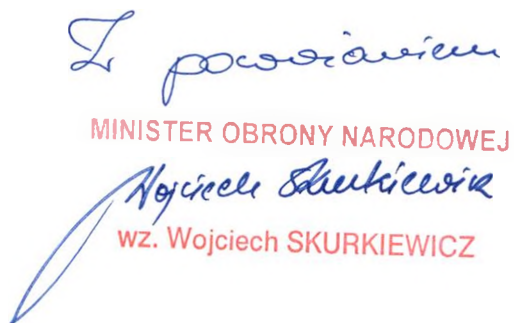 Z poważaniem
MINISTER OBRONY NARODOWEJ
Wojciech Skurkiewicz
wz. Wojciech SKURKIEWICZ